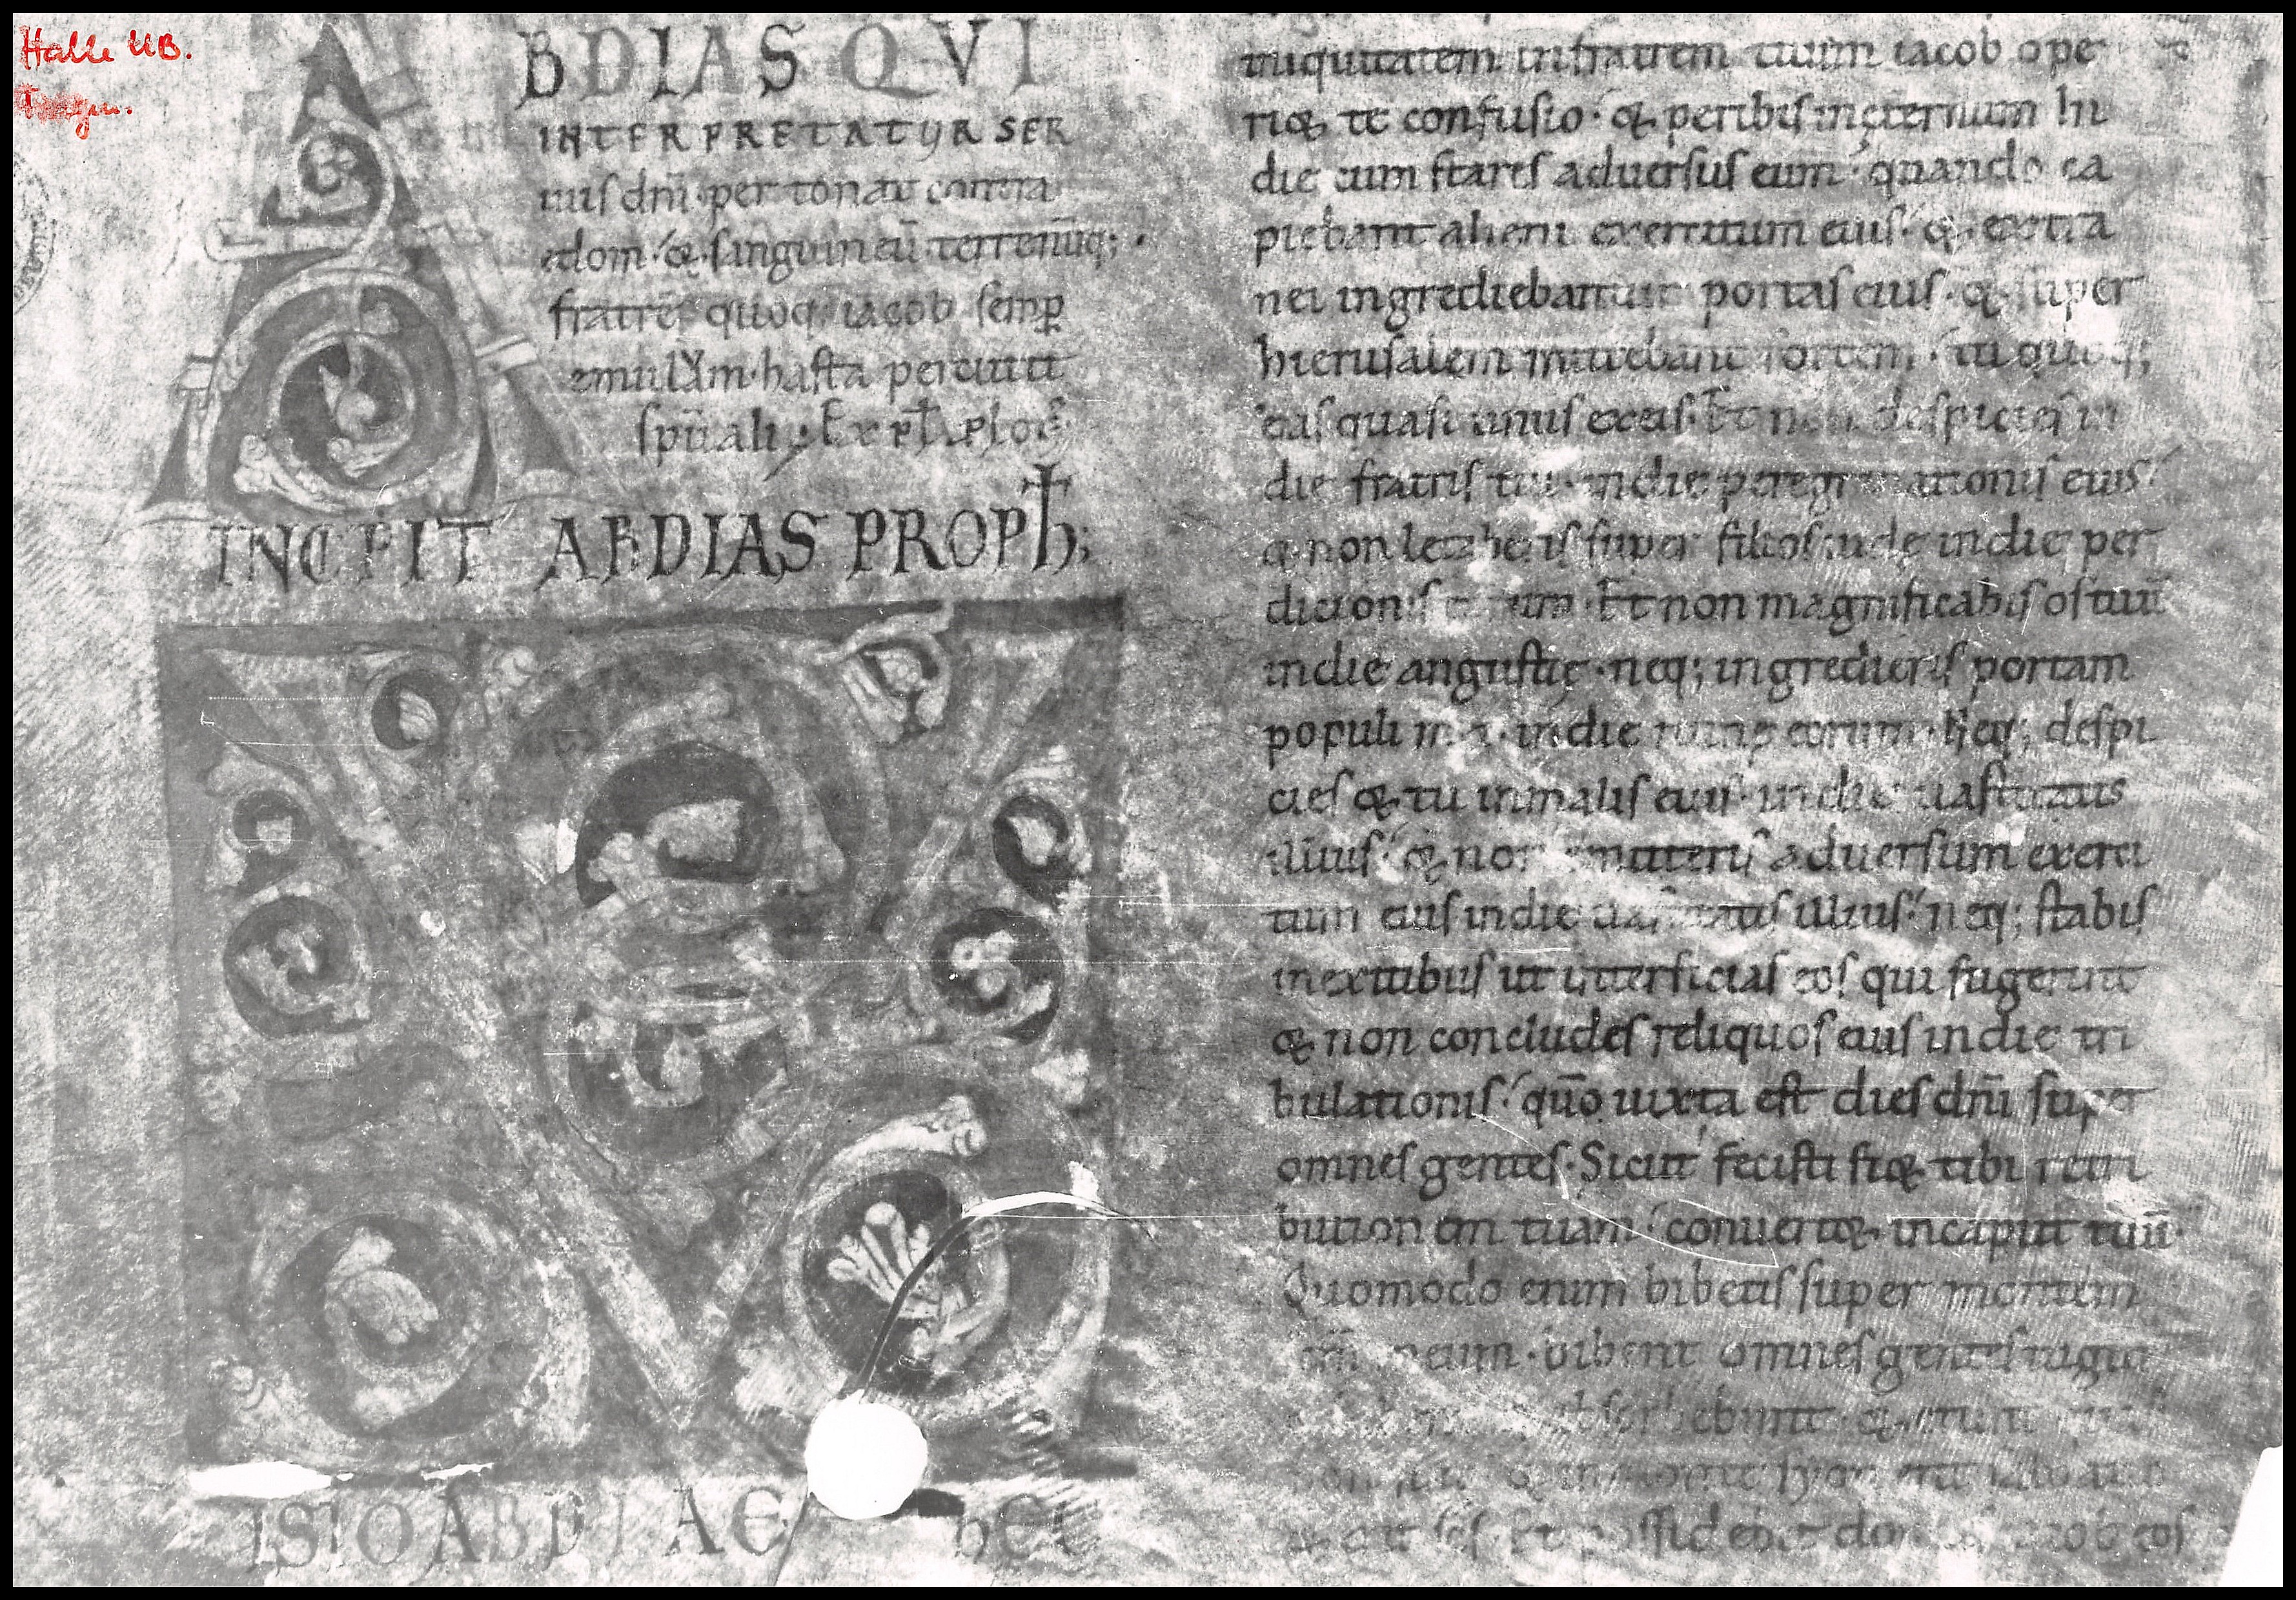 Halle UB.
Fragm.
BDIAS QVI
INTERPRETATUR SER
uus dnī· per tonat contra
edom·́ & ·sanguineū·terrenūq;·
fratrē quoq; iacob semꝑ
emulum·hasta percutit
spūali
INCIPIT ABDIAS PROPh;
ISIO ABDIAE hEC
iniquitatem infratrem tuum iacob ope
ri& te confusio·́ & peribis inęternum In
die cum stares aduersus eum·́ quando ca
piebant alieni exercitum eius·́ & extra
nei ingrediebantur portas eius·& super
hierusalem mittebant sortem·́ tu quoq;
eras quasi unus exeis· Et non despicies in
die fratris tui·indie peregrinationis eius·́
& non lę super filios iude indie per
dicionis eorum· Et non magnificabis os tuū
indie angustię·neq; ingredieris portam
populi mei·indie ruinę eorum·Neq; despi
cies & tu inmalis eius·indie uastitatis
illius·́ & non emitteris aduersum exerci
tum eius indie uastitatis illius·́ neq; stabis
inexitibus ut interficias eos qui fugerint
& non concludes reliquos eius indie tri
bulationis·́ qūo iuxta est dies dnī super
omnes gentes· Sicut fecisti fi& tibi retri
bution em tuam·́ conuert&· incaput tuū·
Quomodo enim bibetis super montem
meum·bibent omnes gentes iugit
absorbebunt·& erunt
& inmonte syon erit
scs· Et possidebit domus iacob eos